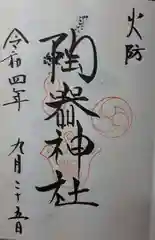 火防
陶器神社
令和四年
九月二十五日